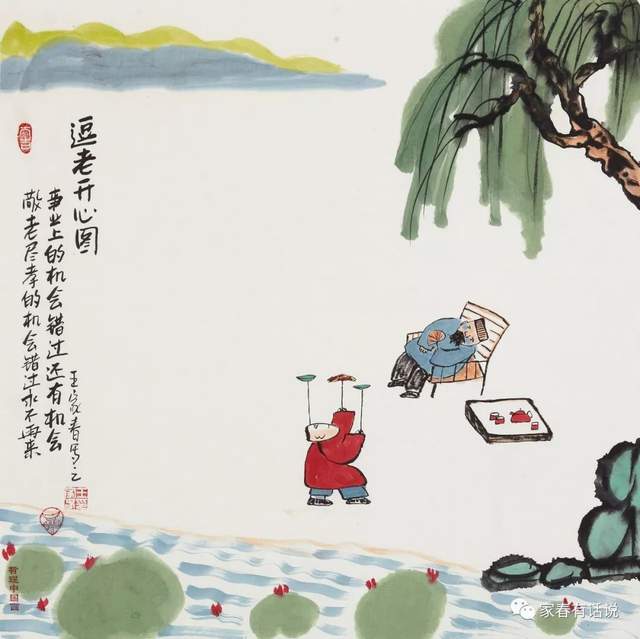 逗老开心图
事业上的机会错过还有机会
敬老尽孝的机会错过永不再来
王家春写之
看现中国画
家春有话说